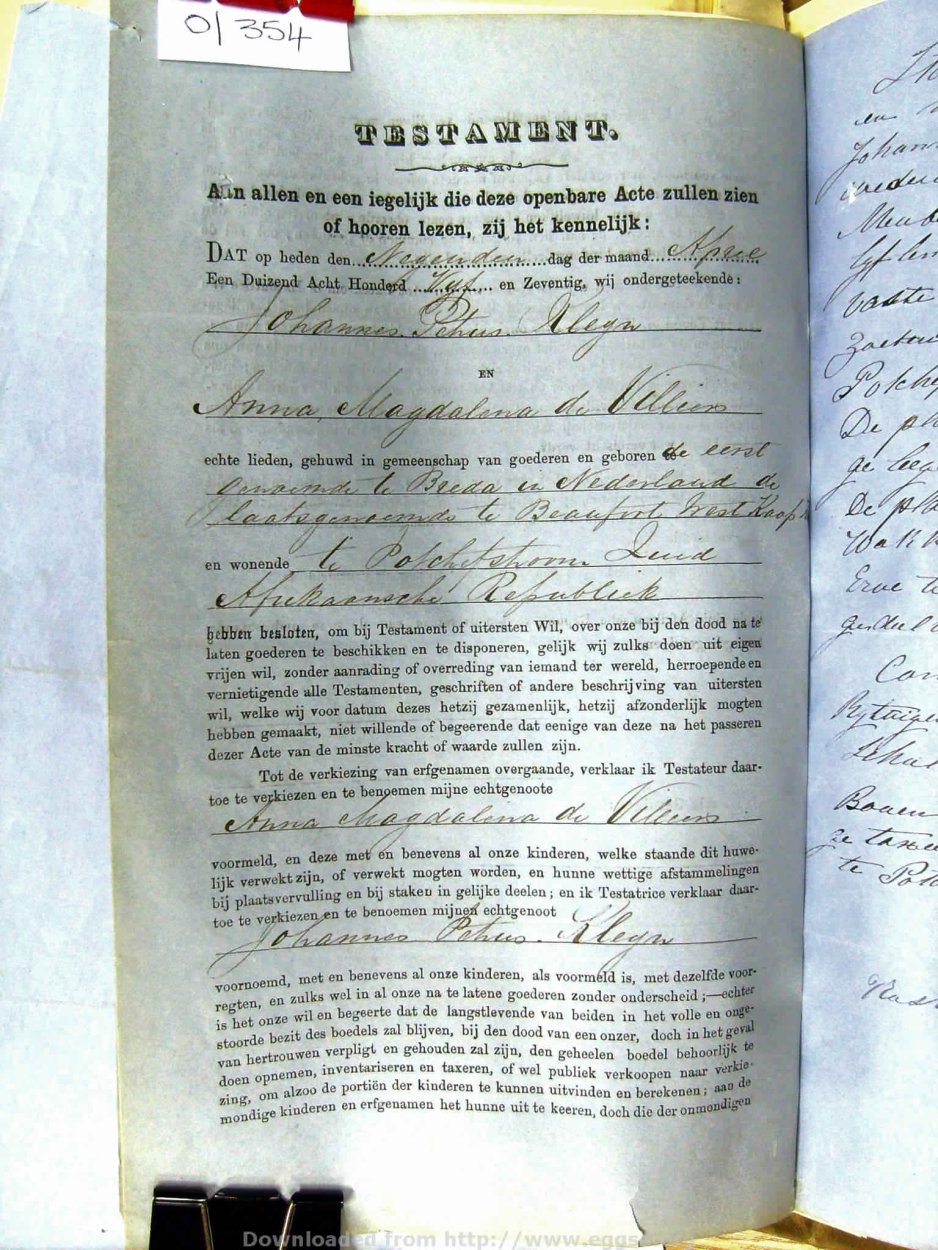 0/354
TESTAMENT.
Aan allen en een iegelijk die deze openbare Acte zullen zien
of hooren lezen, zij het kennelijk:
DAT op heden den Negenden dag der maand April
Een Duizend Acht Honderd Vyf en Zeventig, wij ondergeteekende:
Johannes Petrus Kleyn
EN
Anna Magdalena de Villiers
echte lieden, gehuwd in gemeenschap van goederen en geboren de eerst
genoemde te Breda in Nederland de
laatsgenoemde te Beaufort West Kaap
en wonende te Potchefstroom Zuid
Afrikaansche Republiek
hebben besloten, om bij Testament of uitersten Wil, over onze bij den dood na te
laten goederen te beschikken en te disponeren, gelijk wij zulks doen uit eigen
vrijen wil, zonder aanrading of overreding van iemand ter wereld, herroepende en
vernietigende alle Testamenten, geschriften of andere beschrijving van uitersten
wil, welke wij voor datum dezes hetzij gezamenlijk, hetzij afzonderlijk mogten
hebben gemaakt, niet willende of begeerende dat eenige van deze na het passeren
dezer Acte van de minste kracht of waarde zullen zijn.
Tot de verkiezing van erfgenamen overgaande, verklaar ik Testateur daar-
toe te verkiezen en te benoemen mijne echtgenoote
Anna Magdalena de Villiers
voormeld, en deze met en benevens al onze kinderen, welke staande dit huwe-
lijk verwekt zijn, of verwekt mogten worden, en hunne wettige afstammelingen
bij plaatsvervulling en bij staken in gelijke deelen; en ik Testatrice verklaar daar-
toe te verkiezen en te benoemen mijnen echtgenoot
Johannes Petrus Kleyn
voornoemd, met en benevens al onze kinderen, als voormeld is, met dezelfde voor-
regten, en zulks wel in al onze na te latene goederen zonder onderscheid;—echter
is het onze wil en begeerte dat de langstlevende van beiden in het volle en onge-
stoorde bezit des boedels zal blijven, bij den dood van een onzer, doch in het geval
van hertrouwen verpligt en gehouden zal zijn, den geheelen boedel behoorlijk te
doen opnemen, inventariseren en taxeren, of wel publiek verkoopen naar verkie-
zing, om alzoo de portiën der kinderen te kunnen uitvinden en berekenen; aan de
mondige kinderen en erfgenamen het hunne uit te keeren, doch die der onmondigen
en
Johann
De
De
te
Erve te
Bouen
te
Downloaded from http://www.eggs